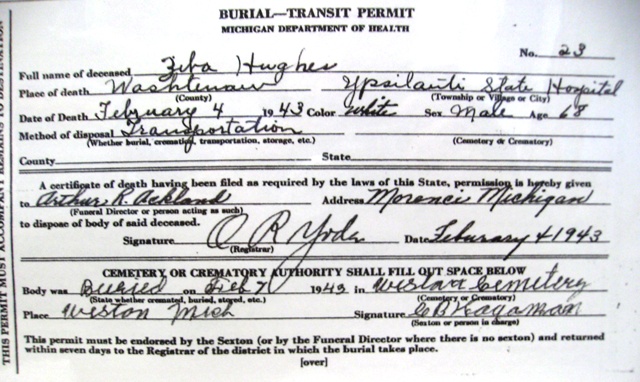 BURIAL—TRANSIT PERMIT
MICHIGAN DEPARTMENT OF HEALTH
No. 23
Full name of deceased Ziba Hughes
Place of death Washtenaw Ypsilanti State Hospital
(County) (Township or Village or City)
Date of Death February 4 1943 Color White Sex Male Age 68
Method of disposal Transportation
(Whether burial, cremation, transportation, storage, etc.) (Cemetery & Crematory)
County State
A certificate of death having been filed as required by the laws of this State, permission is hereby given
to Arthur R. Ackland Address Morenci Michigan
(Funeral Director or person acting as such)
to dispose of body of said deceased.
Signature O R Yoder Date Feburary 4 1943
(Registrar)
CEMETERY OR CREMATORY AUTHORITY SHALL FILL OUT SPACE BELOW
Body was Buried on Feb 7 1943 in Weston Cemetery
(State whether cremated, buried, stored, etc.) (Cemetery or Crematory)
Place Weston Mich Signature C B Kagaman
(Sexton or person in charge)
This permit must be endorsed by the Sexton (or by the Funeral Director where there is no sexton) and returned
within seven days to the Registrar of the district in which the burial takes place.
[over]
THIS PERMIT MUST ACCOMPANY REMAINS TO DESTINATION